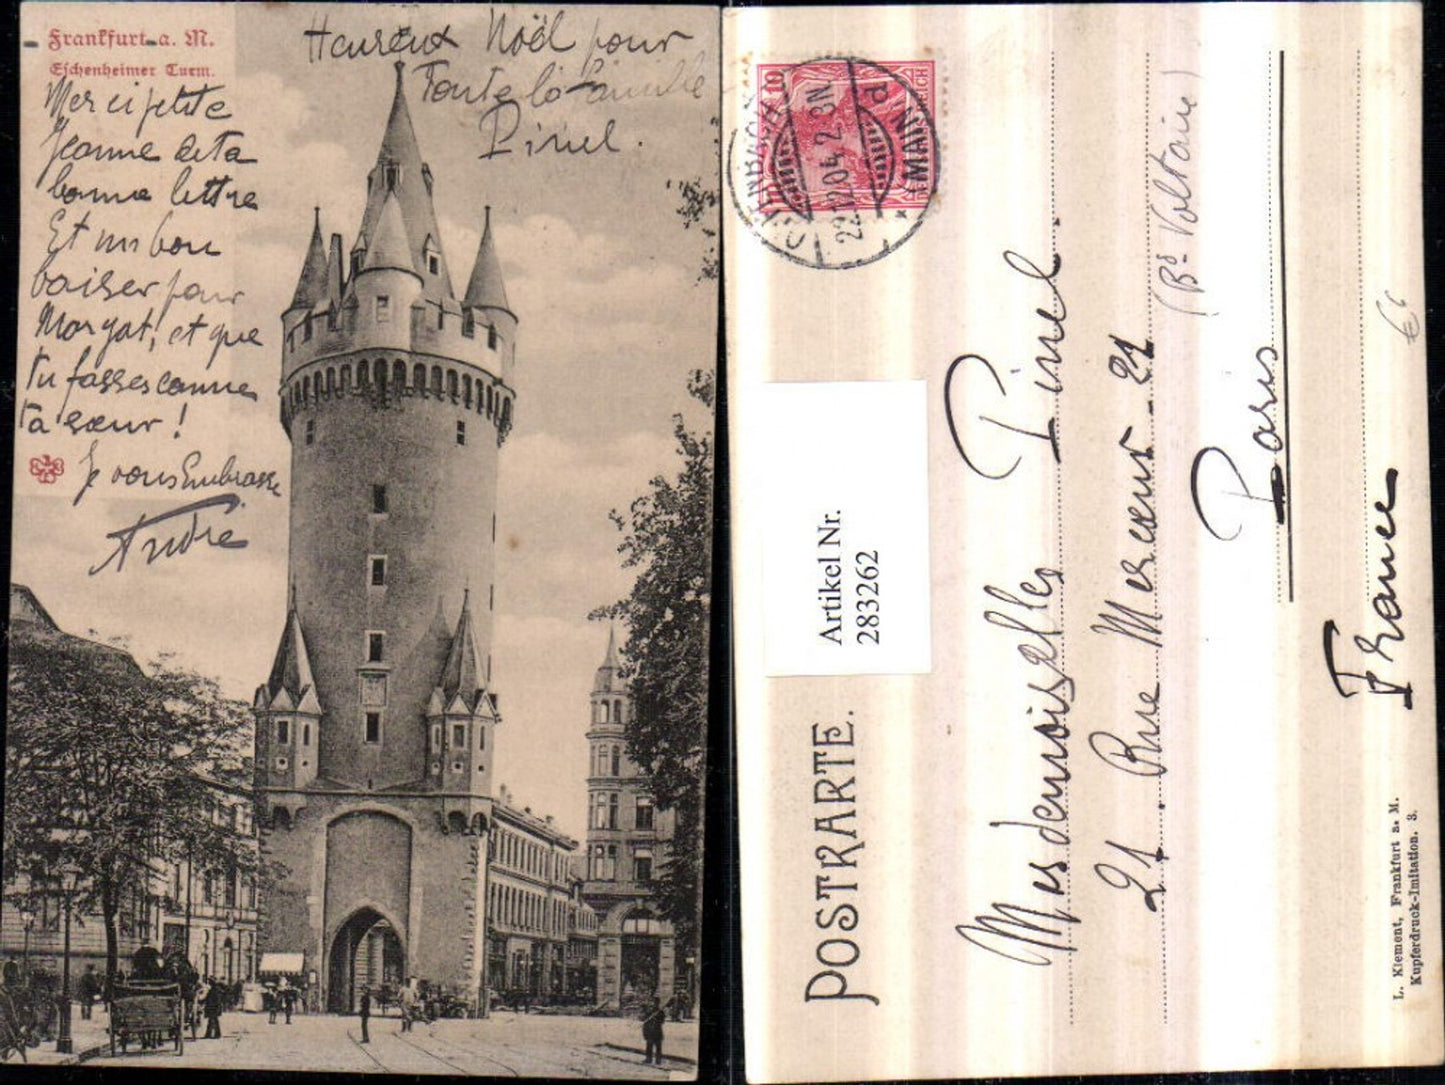 Frankfurt a. M.
Eschenheimer Turm.
Heureux Noël pour
Toute la famille
Pinel.
Merci petite
Jeanne de ta
bonne lettre
Et un bon
baiser pour
Margat, et que
tu fasses comme
ta sœur !
Je vous Embrasse
André
POSTKARTE.
10
REICH
OFFENBACH
22.12.04. 2-3N.
(MAIN)
d
Artikel Nr.
283262
Mesdemoiselles Pinel
21 Rue Mercœur 21
(Bd Voltaire)
Paris
France
€6
L. Klement, Frankfurt a. M.
Kupferdruck-Imitation. 3.